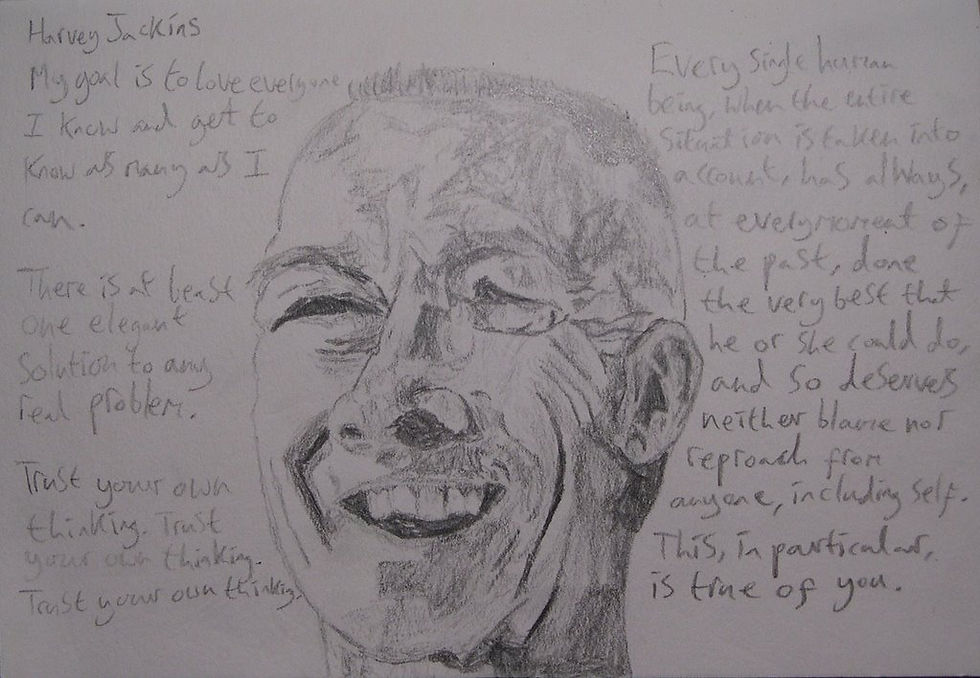 Harvey Jackins
My goal is to love everyone
I know and get to
know as many as I
can.
There is at least
one elegant
solution to any
real problem.
Trust your own
thinking. Trust
your own thinking.
Trust your own thinking.
Every single human
being, when the entire
situation is taken into
account, has always,
at every moment of
the past, done
the very best that
he or she could do,
and so deserves
neither blame nor
reproach from
anyone, including self.
This, in particular,
is true of you.